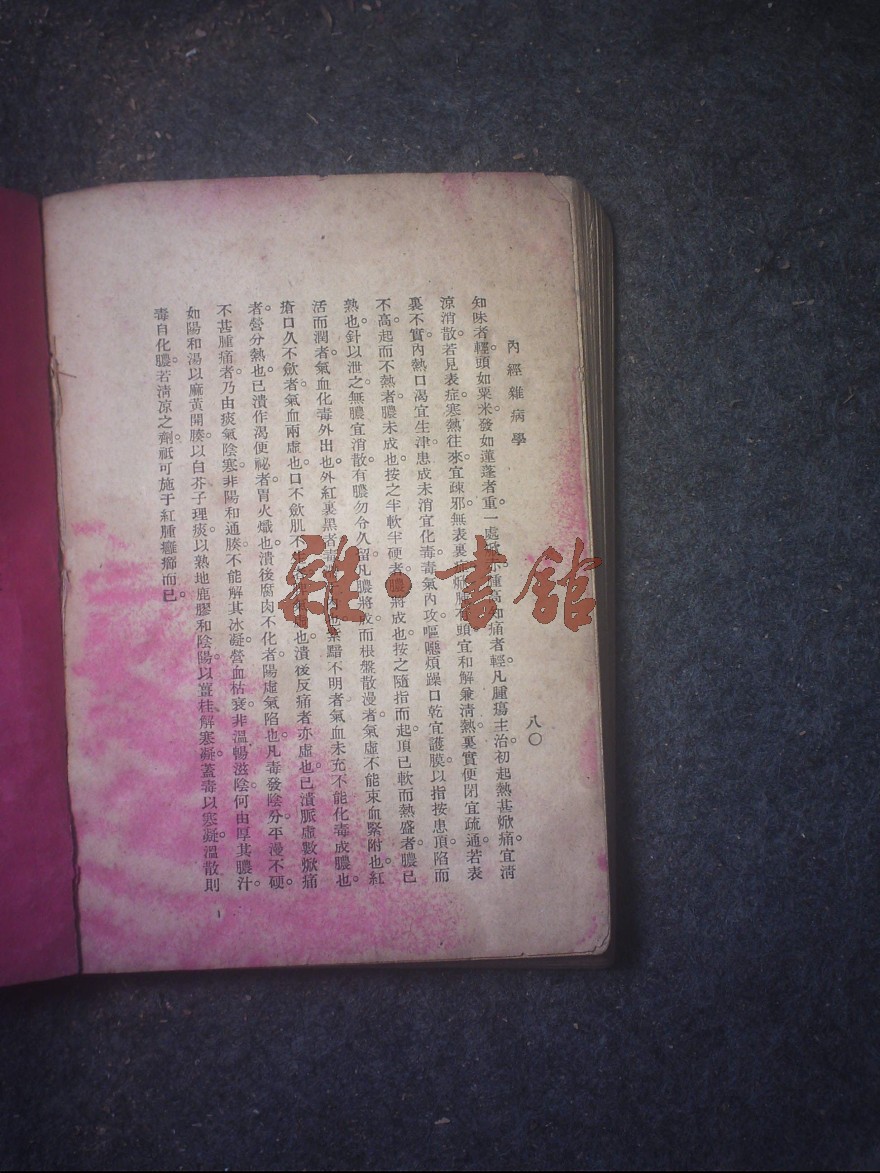 內經雜病學
八〇
知味者輕。頭如粟米。發如蓮蓬者重。一處腫高知痛者輕。凡腫瘍主治。初起熱甚焮痛。宜淸
涼消散。若見表症。寒熱往來。宜疎邪。無表裏。無頭。宜和解兼淸熱。裏實便閉。宜疏通。若表
裏不實。內熱口渴。宜生津。患成未消。宜化毒。毒氣內攻。嘔噦煩躁口乾。宜護膜。以指按患頂陷而
不高起而不熱者。膿未成也。按之半軟半硬者。膿將成也。按之隨指而起。頂已軟而熱盛者。膿已
熟也。針以泄之。無膿宜消散。有膿勿令久留。凡膿將成而根盤散漫者。氣虛不能束血緊附也。紅
活而潤者。氣血化毒外出也。外紅裏黑者。毒黯不明者。氣血未充。不能化毒成膿也。
瘡口久不歛者。氣血兩虛也。口不歛肌不也。潰後反痛者亦虛也。已潰脈虛數焮痛
者。營分熱也。已潰作渴便祕者。胃火熾也。潰後腐肉不化者。陽虛氣陷也。凡毒發陰分。平漫不硬。
不甚腫痛者。乃由痰氣陰寒。非陽和通腠。不能解其冰凝。營血枯衰。非溫暢滋陰。何由厚其膿汁。
如陽和湯以麻黃開腠。以白芥子理痰。以熟地鹿膠和陰陽。以薑桂解寒凝。蓋毒以寒凝。溫散則
毒自化膿。若淸涼之劑。祇可施于紅腫癰癤而已。
雜·書館